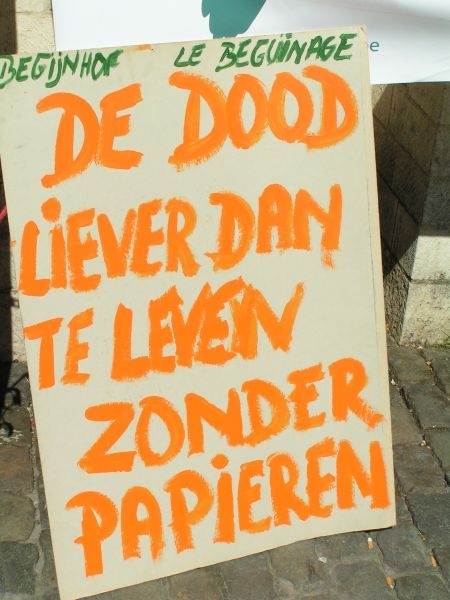 BEGIJNHOF LE BEGUINAGE
DE DOOD
LIEVER DAN
TE LEVEN
ZONDER
PAPIEREN